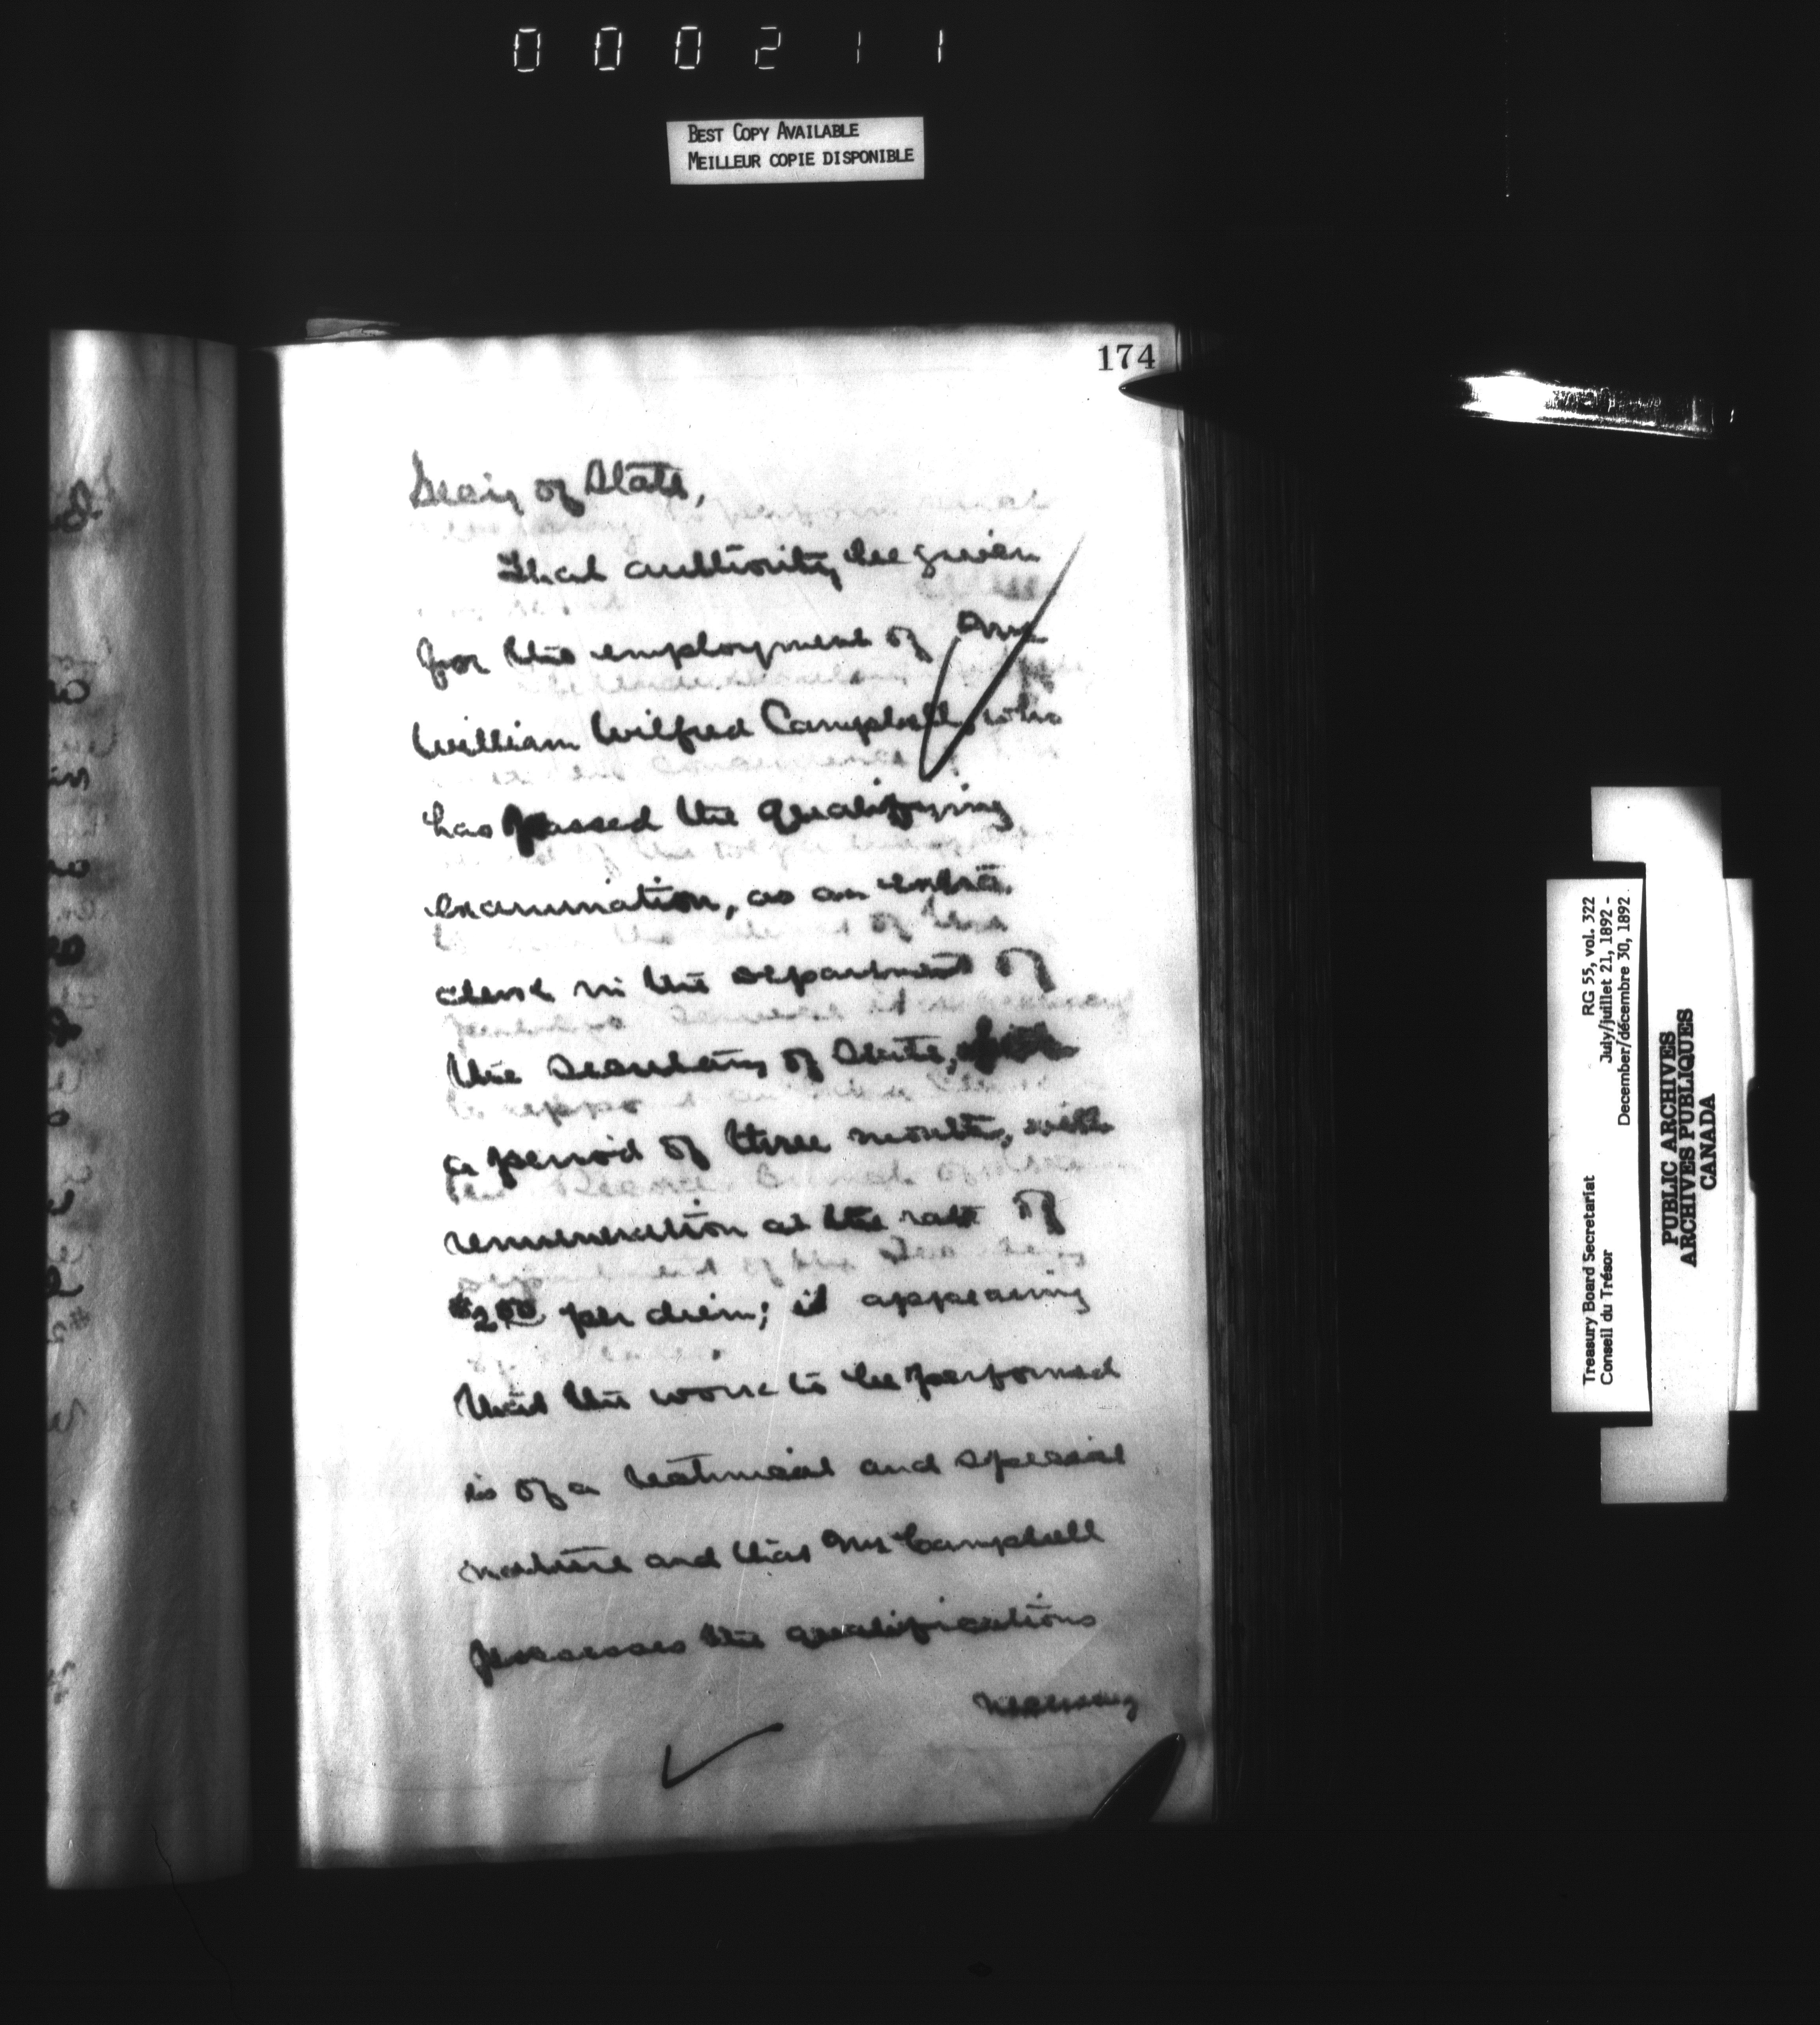 000211
BEST COPY AVAILABLE
MEILLEUR COPIE DISPONIBLE
174
Secy of State,
That authority be given
for the employment of Mr
William Wilfred Campbell, who
has passed the qualifying
examination, as an extra
clerk in the Department of
the Secretary of State, for
a period of three months, with
remuneration at the rate of
$2.00 per diem; it appearing
that the work to be performed
is of a technical and special
nature and that Mr Campbell
possesses the qualifications
necessary
Treasury Board Secretariat RG 55, vol. 322
Conseil du Trésor July/juillet 21, 1892 -
December/décembre 30, 1892
PUBLIC ARCHIVES
ARCHIVES PUBLIQUES
CANADA